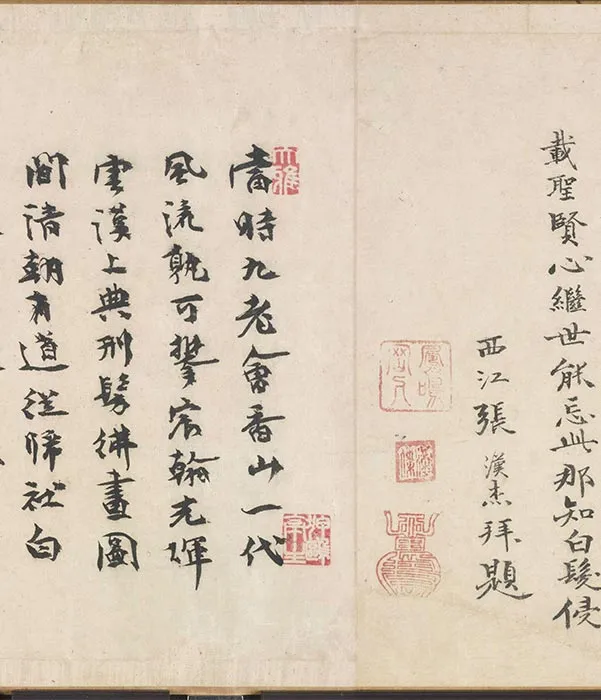 載聖賢心繼世能忘此那知白髮侵
西江張漢杰拜題
大雅
當時九老會香山一代
風流孰可攀宸翰光輝
雲漢上典刑髣彿畫圖
間清朝有道從歸社白